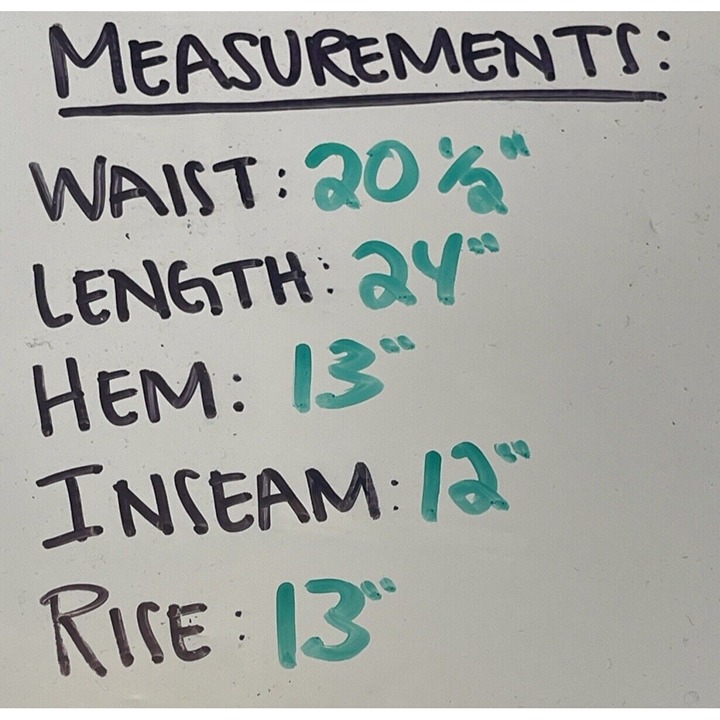 MEASUREMENTS:
WAIST: 20 ½"
LENGTH: 24"
HEM: 13"
INSEAM: 12"
RISE: 13"